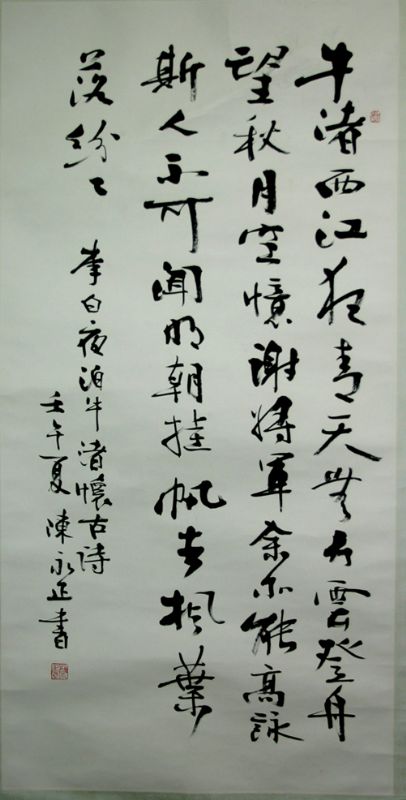 牛渚西江夜青天無片雲登舟
望秋月空憶謝將軍余亦能高詠
斯人不可聞明朝挂帆去楓葉
落紛〻
李白夜泊牛渚懷古詩
壬午夏 陳永正書